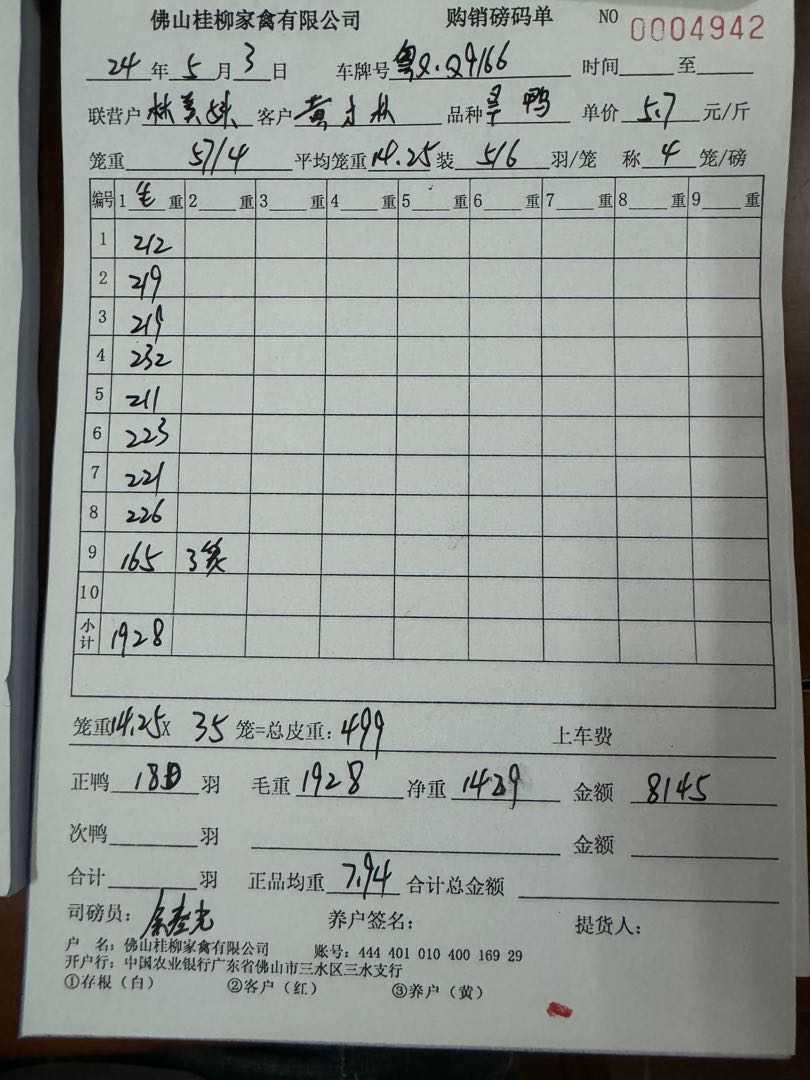 佛山桂柳家禽有限公司 购销磅码单 NO 0004942
24 年 5 月 3 日 车牌号 粤X·Q9166 时间 至
联营户 林美妹 客户 黄才林 品种 旱鸭 单价 5.7 元/斤
笼重 57/4 平均笼重 14.25 装 5/6 羽/笼 称 4 笼/磅
编号 1 毛 重 2 重 3 重 4 重 5 重 6 重 7 重 8 重 9 重
1 212
2 219
3 219
4 232
5 211
6 223
7 221
8 226
9 165 3笼
10
小计 1928
笼重 14.25 X 35 笼=总皮重: 499 上车费
正鸭 羽 毛重 1928 净重 1429 金额 8145
次鸭 羽 金额
合计 羽 正品均重 7.94 合计总金额
司磅员: 养户签名: 提货人:
户 名: 佛山桂柳家禽有限公司 账号: 444 401 010 400 169 29
开户行: 中国农业银行广东省佛山市三水区三水支行
①存根（白） ②客户（红） ③养户（黄）